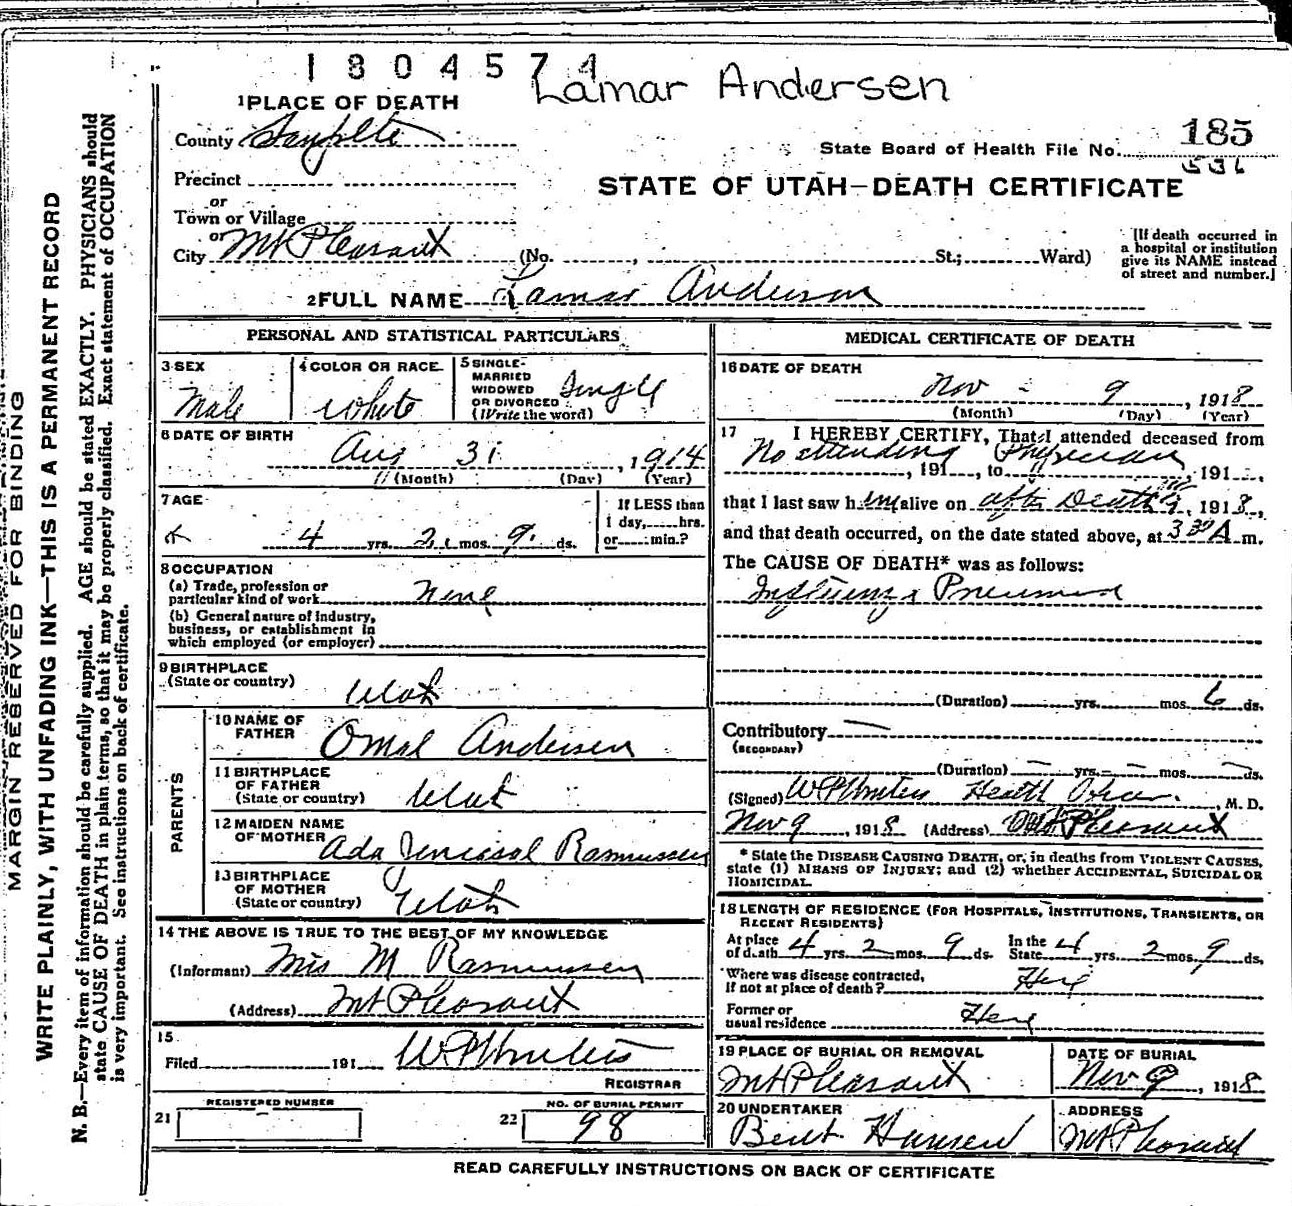 1804574
Lamar Andersen
1 PLACE OF DEATH
County Sanpete
State Board of Health File No. 185
536
Precinct
STATE OF UTAH—DEATH CERTIFICATE
or
Town or Village
or
City Mt Pleasant (No. , St.; Ward)
[If death occurred in
a hospital or institution
give its NAME instead
of street and number.]
2 FULL NAME Lamar Andersen
PERSONAL AND STATISTICAL PARTICULARS
3 SEX
Male
4 COLOR OR RACE
White
5 SINGLE
MARRIED
WIDOWED
OR DIVORCED
(Write the word)
Single
6 DATE OF BIRTH
Aug 31, 1914
(Month) (Day) (Year)
7 AGE
4 yrs. 2 mos. 9 ds.
If LESS than
1 day, hrs.
or min.?
8 OCCUPATION
(a) Trade, profession or
particular kind of work None
(b) General nature of industry,
business, or establishment in
which employed (or employer)
9 BIRTHPLACE
(State or country)
Utah
PARENTS
10 NAME OF
FATHER
Omal Andersen
11 BIRTHPLACE
OF FATHER
(State or country)
Utah
12 MAIDEN NAME
OF MOTHER
Ada Rasmussen
13 BIRTHPLACE
OF MOTHER
(State or country)
Utah
14 THE ABOVE IS TRUE TO THE BEST OF MY KNOWLEDGE
(Informant) Mrs M Rasmussen
(Address) Mt Pleasant
15
Filed 191
REGISTRAR
REGISTERED NUMBER
21
NO. OF BURIAL PERMIT
22 98
MEDICAL CERTIFICATE OF DEATH
16 DATE OF DEATH
Nov - 9, 1918
(Month) (Day) (Year)
17 I HEREBY CERTIFY, That I attended deceased from
No attending Physician
, 191 , to , 191 ,
that I last saw h im alive on after Death 9, 1918,
and that death occurred, on the date stated above, at 3 30 A m.
The CAUSE OF DEATH* was as follows:
Influenza Pneumonia
(Duration) yrs. mos. 6 ds.
Contributory —
(SECONDARY)
(Duration) — yrs. — mos. — ds.
(Signed) Health Officer, M. D.
Nov 9, 1918 (Address) Mt Pleasant
* State the DISEASE CAUSING DEATH, or, in deaths from VIOLENT CAUSES,
state (1) MEANS OF INJURY; and (2) whether ACCIDENTAL, SUICIDAL OR
HOMICIDAL.
18 LENGTH OF RESIDENCE (FOR HOSPITALS, INSTITUTIONS, TRANSIENTS, OR
RECENT RESIDENTS)
At place
of death 4 yrs. 2 mos. 9 ds. In the
State 4 yrs. 2 mos. 9 ds.
Where was disease contracted,
If not at place of death? Here
Former or
usual residence Here
19 PLACE OF BURIAL OR REMOVAL
Mt Pleasant
DATE OF BURIAL
Nov 9, 1918
20 UNDERTAKER
Bent Hansen
ADDRESS
Mt Pleasant
READ CAREFULLY INSTRUCTIONS ON BACK OF CERTIFICATE
MARGIN RESERVED FOR BINDING
WRITE PLAINLY, WITH UNFADING INK—THIS IS A PERMANENT RECORD
N. B.—Every item of information should be carefully supplied. AGE should be stated EXACTLY. PHYSICIANS should
state CAUSE OF DEATH in plain terms, so that it may be properly classified. Exact statement of OCCUPATION
is very important. See instructions on back of certificate.